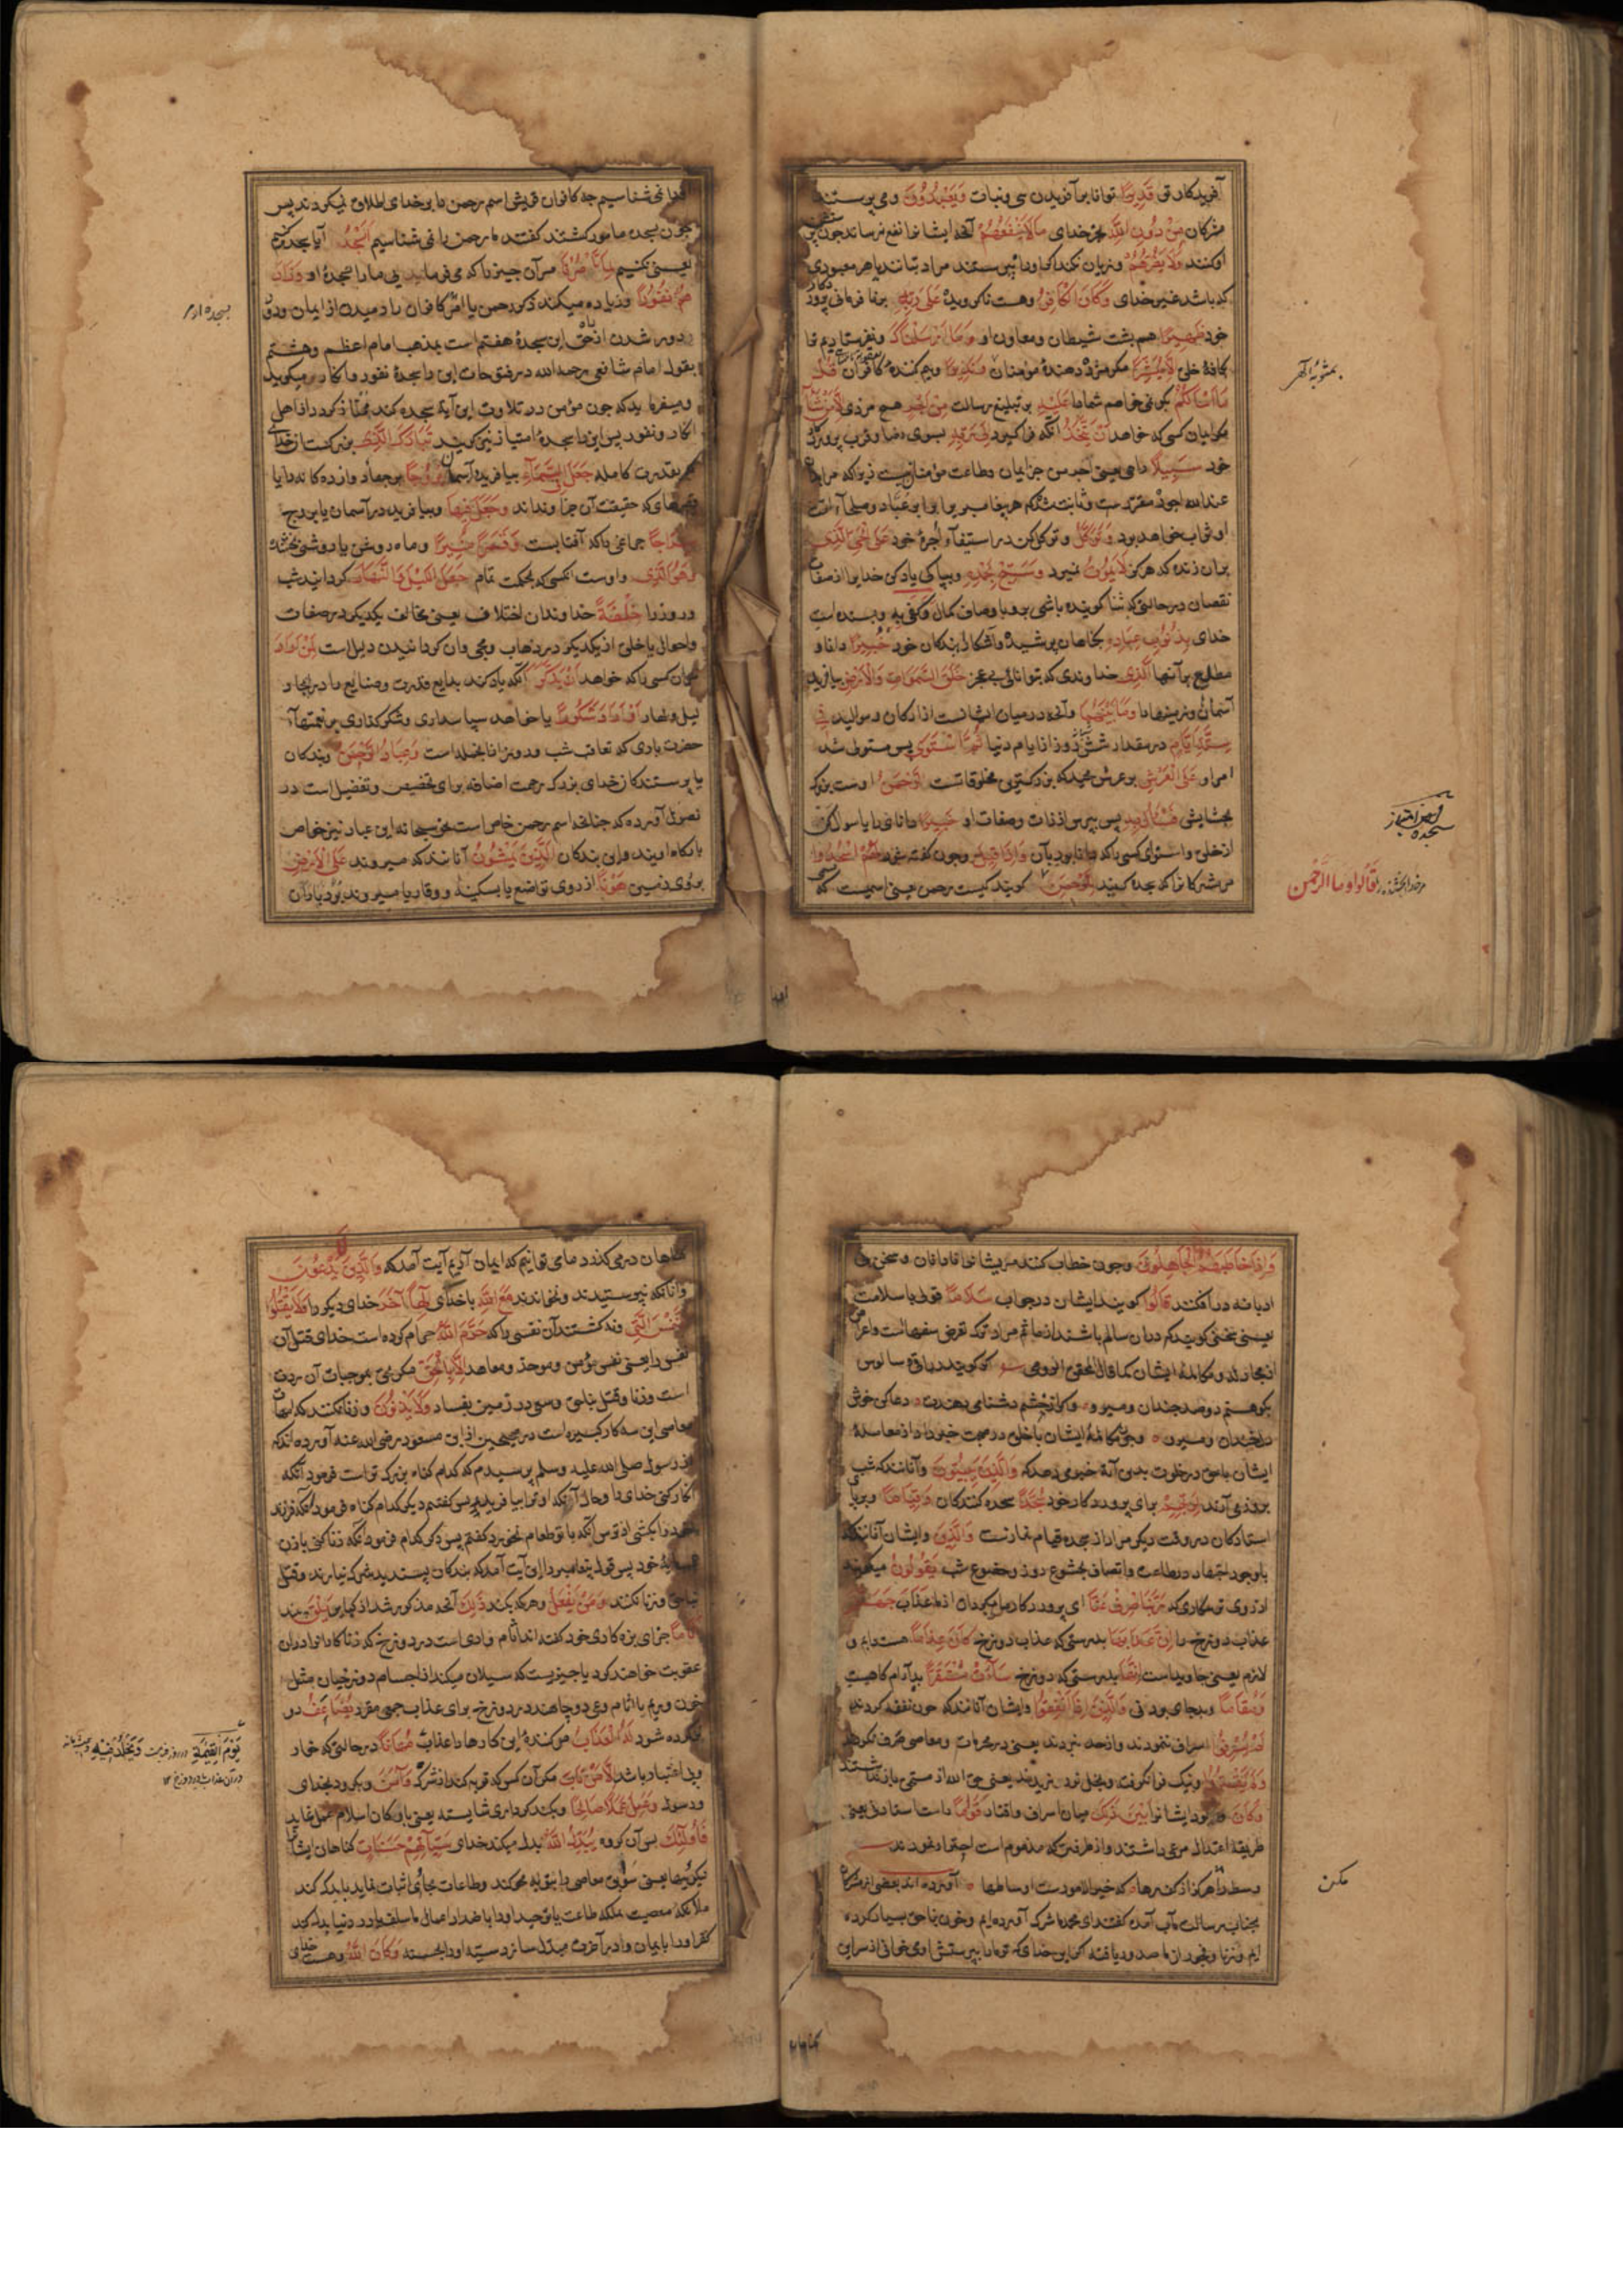 آفریدکار تو قَدِيرًا توانا بر آفریدن بی وبنات وَيَعْبُدُونَ ومی پرستند
مشرکان مِنْ دُونِ اللَّهِ بجز خدای مَا لَا يَنْفَعُهُمْ آنچه ایشانرا نفع نرساند چون پرستش
او کنند وَلَا يَضُرُّهُمْ وزیان نکند اکر او را نپرستند مراد بتانند یا هر معبودی
که باشد غیر خدای وَكَانَ الْكَافِرُ وهست ناکرویده عَلَى رَبِّهِ بر نافرمانی پرورد کار
خود ظَهِيرًا هم پشت شیطان ومعاون او وَمَا أَرْسَلْنَاكَ ونفرستادیم ترا
بکافهٔ خلق إِلَّا مُبَشِّرًا مکر مژده دهندهٔ مؤمنان وَنَذِيرًا وبیم کنندهٔ کافران قُلْ
مَا أَسْأَلُكُمْ بکو نمی خواهم شما را عَلَيْهِ بر تبلیغ رسالت مِنْ أَجْرٍ هیچ مزدی إِلَّا مَنْ شَاءَ
مکر ایمان کسی که خواهد أَنْ يَتَّخِذَ آنکه فرا کیرد إِلَى رَبِّهِ بسوی رضا وقرب پروردکار
خود سَبِيلًا راهی یعنی اجر من جز ایمان وطاعت مؤمنان نیست زیرا که مرا
عند الله اجر مقررست وثابت شده که هر پیغامبر را برابر عبّاد وصلحآء امت
او ثواب خواهد بود وَتَوَكَّلْ وتوکل کن در استیفآء اجرهٔ خود عَلَى الْحَيِّ الَّذِي
بران زنده که هرکز لَا يَمُوتُ نمیرد وَسَبِّحْ بِحَمْدِهِ وبپاکی یاد کن خدایرا از صفات
نقصان در حالتی که ثنا کوینده باشی برو باوصاف کمال وَكَفَى بِهِ وبسنده است
خدای بِذُنُوبِ عِبَادِهِ بکناهان پوشیده وآشکارا بندکان خود خَبِيرًا دانا و
مطلع بر آنها الَّذِي خداوندی که بتوانائی بی عجز خَلَقَ السَّمَوَاتِ وَالْأَرْضَ بیافرید
آسمانها وزمینها را وَمَا بَيْنَهُمَا وآنچه درمیان ایشانست از ارکان وموالید فِي
سِتَّةِ أَيَّامٍ در مقدار شش روز از ایام دنیا ثُمَّ اسْتَوَى پس مستولی شد
امر او عَلَى الْعَرْشِ بر عرش مجید که بزرکترین مخلوقاتست الرَّحْمَنُ اوست بزرک
بخشایش فَسْأَلْ بِهِ پس بپرس از ذات وصفات او خَبِيرًا دانای را یا سوال کن
از خلق واستوای کسی را که دانا بود بآن وَإِذَا قِيلَ وچون کفته شود لَهُمُ اسْجُدُوا
مر مشرکانرا که سجده کنید لِلرَّحْمَنِ کویند کیست رحمن یعنی اسمیست که
سجده
قَالُوا وَمَا الرَّحْمَنُ
خدا نمی شناسیم چه کافران قریش اسم رحمن را بر خدای اطلاق نمیکردند پس
چون بسجده مأمور کشتند کفتند ما رحمن را نمی شناسیم أَنَسْجُدُ آیا سجده کنیم
یعنی نکنیم لِمَا تَأْمُرُنَا مر آن چیز را که می فرمائی ما را بسجدهٔ او وَزَادَ
هُمْ نُفُورًا وزیاده میکند ذکر رحمن یا امر کافران را رمیدن از ایمان و
دور شدن از حق این سجدهٔ هفتم است بمذهب امام اعظم وهشتم
بقول امام شافعی رحمه الله در فتوحات این را سجدهٔ نفور وانکار میکوید
ومیفرماید که چون مؤمن در تلاوت این آیة سجده کند ممتاز کردد از اهل
انکار ونفور پس این را سجدهٔ امتیاز نیز کویند تَبَارَكَ الَّذِي بزرکست آن خدای
که بقدرت کامله جَعَلَ فِي السَّمَاءِ بیافرید در آسمان بُرُوجًا برجها دوازده کانه را یا
قصرهای که حقیقت آن جز او نداند وَجَعَلَ فِيهَا وبیافرید در آسمان یا بروج
سِرَاجًا چراغی را که آفتابست وَقَمَرًا مُنِيرًا وماه روشن یا روشنی بخشنده
وَهُوَ الَّذِي واوست آنکسی که بحکمت تمام جَعَلَ اللَّيْلَ وَالنَّهَارَ کردانید شب
وروز را خِلْفَةً خداوندان اختلاف یعنی مخالف یکدیکر در صفات
واحوال یا خلق از یکدیکر در ذهاب ومجی وآن کردانیدن دلیل است لِمَنْ أَرَادَ
مر آن کسی را که خواهد أَنْ يَذَّكَّرَ آنکه یاد کند بدایع قدرت وصنایع ما در ایجاد
لیل ونهار أَوْ أَرَادَ شُكُورًا یا خواهد سپاسداری وشکرکذاری بر نعمتهآء
حضرت باری که تعاقب شب وروز ازانجمله است وَعِبَادُ الرَّحْمَنِ وبندکان
یا پرستندکان خدای بزرک رحمت اضافه برای تخصیص وتفضیل است در
فصول آورده که چنانچه اسم رحمن خاص است بحق سبحانه این عباد نیز خواص
بارکاه اویند واین بندکان الَّذِينَ يَمْشُونَ آنانند که میروند عَلَى الْأَرْضِ
بروی زمین هَوْنًا از روی تواضع یا بسکینه ووقار یا میروند بردباران
وَإِذَا خَاطَبَهُمُ الْجَاهِلُونَ وچون خطاب کنند مر ایشانرا نادانان وسخن بی
ادبانه در افکنند قَالُوا کویند ایشان در جواب سَلَامًا قولی با سلامت
یعنی سخنی کویند که دران سالم باشند از مأثم مراد ترک تعرض سفهاست واعراض
از مجادله ومکالمهٔ ایشان کما قال المحقق الرومی کر کویندت زراق وسالوس
بکو هستم دو صد چندان ومیرو وکر از خشم دشنامی دهندت دعا کن خوش
دل خندان ومیرو وچون مکالمهٔ ایشان با خلق در صحبت خبر داد از معاملهٔ
ایشان با حق در خلوت بدین آیة خبر می دهد که وَالَّذِينَ يَبِيتُونَ وآنانند که شب
بروز می آرند لِرَبِّهِمْ برای پروردکار خود سُجَّدًا سجده کنندکان وَقِيَامًا وبرپا
استادکان در وقت دیکر مراد از سجده وقیام نمازست وَالَّذِينَ وایشان آنانند که
باوجود اجتهاد در طاعت واتصاف بخشوع روز وخضوع شب يَقُولُونَ میکویند
از روی ترسکاری که رَبَّنَا اصْرِفْ عَنَّا ای پروردکار ما بکردان از ما عَذَابَ جَهَنَّمَ
عذاب دوزخ را إِنَّ عَذَابَهَا بدرستی که عذاب دوزخ كَانَ غَرَامًا هست دایم و
لازم یعنی جاویداست إِنَّهَا بدرستی که دوزخ سَاءَتْ مُسْتَقَرًّا بد آرام کاهیست
وَمُقَامًا وبد جای بودنی وَالَّذِينَ إِذَا أَنْفَقُوا وایشان آنانند که چون نفقه کردند
لَمْ يُسْرِفُوا اسراف ننمودند واز حد نبردند یعنی در محرمات ومعاصی صرف نکردند
وَلَمْ يَقْتُرُوا وتنک فرا نکرفتند وبخل نورزیدند یعنی حق الله از مستحق باز نداشتند
وَكَانَ وبود ایشانرا بَيْنَ ذَلِكَ میان اسراف واقتار قَوَامًا راست استادنی یعنی
طریقهٔ اعتدال مرعی داشتند واز طرفین که مذموم است احتراز نمودند
وسط را مکذار که خیر الامورست اوساطها آورده اند بعضی از مشرکان
بجناب رسالت مآب آمده کفتند ای محمد ما شرک آورده ایم وخون ناحق بسیار کرده
ایم وزنا وفجور از ما صدور یافته اکر این خدای که تو ما را بپرستش او می خوانی از سر این
مکن
کناهان در می کذرد ما می توانیم که ایمان آریم آیت آمد که وَالَّذِينَ لَا يَدْعُونَ
وآنانکه نپرستیدند ونخواندند مَعَ اللَّهِ با خدای إِلَهًا آخَرَ خدای دیکر را وَلَا يَقْتُلُونَ
النَّفْسَ الَّتِي ونه کشتند آن نفسی را که حَرَّمَ اللَّهُ حرام کرده است خدای قتل آن
نفس را یعنی نفس مؤمن وموحد ومعاهد إِلَّا بِالْحَقِّ مکر بحق که موجبات آن ردت
است وزنا وقتل بناحق وسعی در زمین بفساد وَلَا يَزْنُونَ وزنا نکنند که امهات
معاصی این سه کار کبیره است در صحیحین از ابن مسعود رضی الله عنه آورده اند که
از رسول صلی الله علیه وسلم پرسیدم که کدام کناه بزرک تر است فرمود آنکه
انکار کنی خدای را وحال آنکه او ترا بیافریده پس کفتم دیکر کدام کناه فرمود آنکه فرزند
خود را بکشی از ترس آنکه با تو طعام نخورد کفتم پس دیکر کدام فرمود آنکه زنا کنی با زن
همسایهٔ خود پس قول پیغامبر را این آیت آمد که بندکان پسندیده شرک نیارند وقتل
ناحق وزنا نکنند وَمَنْ يَفْعَلْ وهرکه بکند ذَلِكَ آنچه مذکور شد از کبایر يَلْقَ بیند
أَثَامًا جزای بزه کاری خود کفته اند اثام وادی است در دوزخ که زناکارانرا دران
عقوبت خواهند کرد یا چیزیست که سیلان میکند از اجسام دوزخیان مثل
خون وریم یا اثام وغی دو چاهند در دوزخ برای عذاب جمعی مقرر يُضَاعَفْ دو
کرده شود لَهُ الْعَذَابُ مر کنندهٔ این کارها را عذاب مُهَانًا در حالتی که خوار
وبی اعتبار باشد إِلَّا مَنْ تَابَ مکر آن کس که توبه کند از شرک وَآمَنَ وبکرود بخدای
ورسول وَعَمِلَ عَمَلًا صَالِحًا وبکند کرداری شایسته یعنی بارکان اسلام عمل نماید
فَأُولَئِكَ پس آن کروه يُبَدِّلُ اللَّهُ بدل میکند خدای سَيِّئَاتِهِمْ حَسَنَاتٍ کناهان ایشان
نیکویها یعنی سوابق معاصی را بتوبه محو کند وطاعات بجای آن اثبات نماید یا بدل کند
ملکهٔ معصیت بملکهٔ طاعت یا توحید او را باضداد اعمال ما سلف در دنیا بدل کند
کفر او را بایمان ودر آخرت مبدل سازد سیئهٔ او را بحسنه وَكَانَ اللَّهُ وهست خدای
يَوْمَ الْقِيَمَةِ در روز قیامت وَيَخْلُدْ فِيهِ
دران عذاب در دوزخ